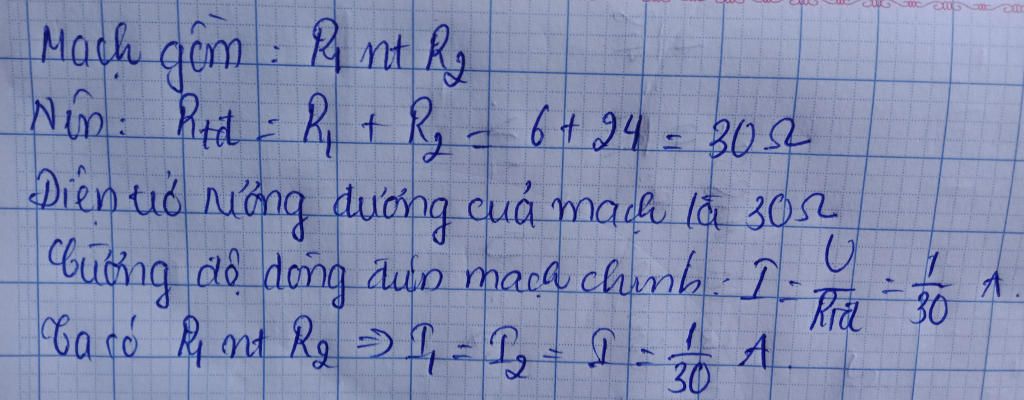 Mạch gồm : R1 nt R2
Nên: Rtđ = R1 + R2 = 6 + 24 = 30Ω
Điện trở tương đương của mạch là 30Ω
Cường độ dòng điện mạch chính: I = U/Rtđ = 1/30 A.
Ta có R1 nt R2 ⇒ I1 = I2 = I = 1/30 A.